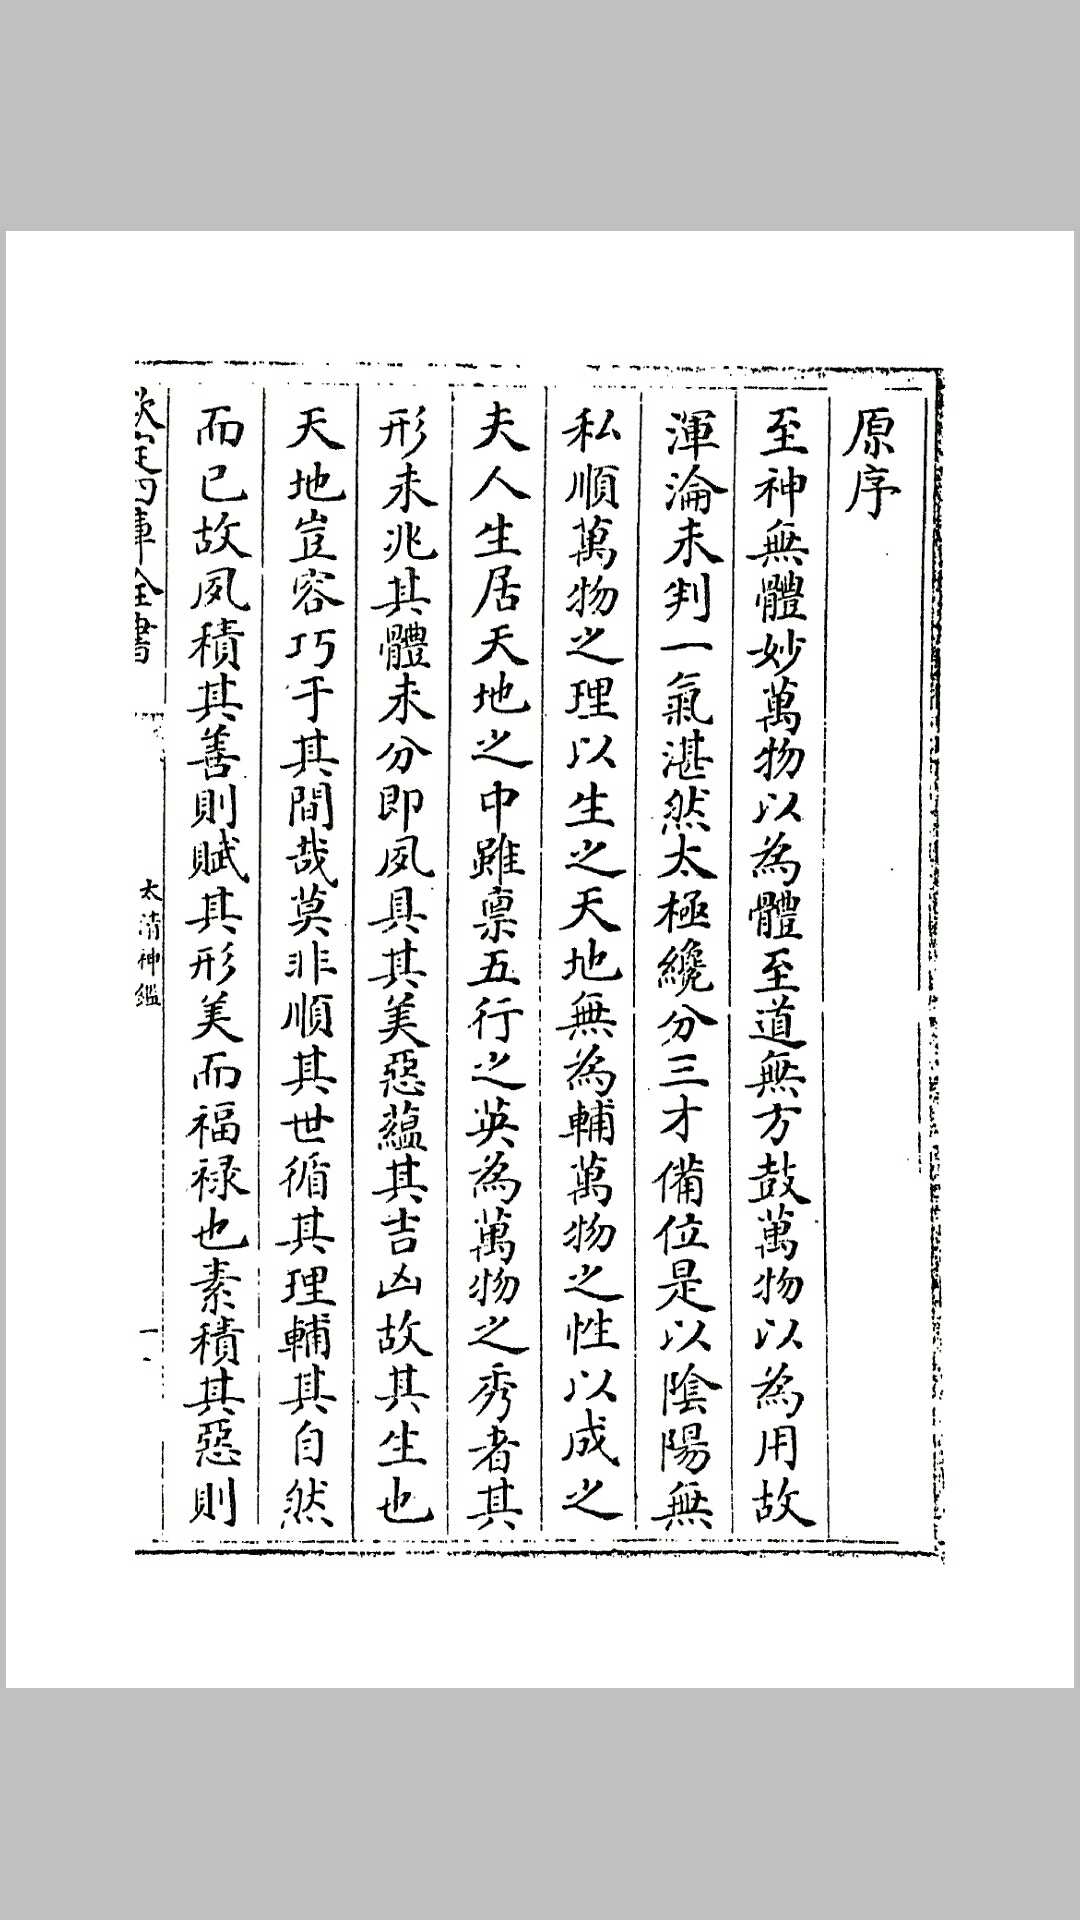 原序
至神無體妙萬物以為體至道無方鼓萬物以為用故
渾淪未判一氣湛然太極纔分三才備位是以陰陽無
私順萬物之理以生之天地無為輔萬物之性以成之
夫人生居天地之中雖禀五行之英為萬物之秀者其
形未兆其體未分即夙具其美惡蘊其吉凶故其生也
天地豈容巧于其間哉莫非順其世循其理輔其自然
而已故夙積其善則賦其形美而福禄也素積其惡則
欽定四庫全書
太清神鑑
一